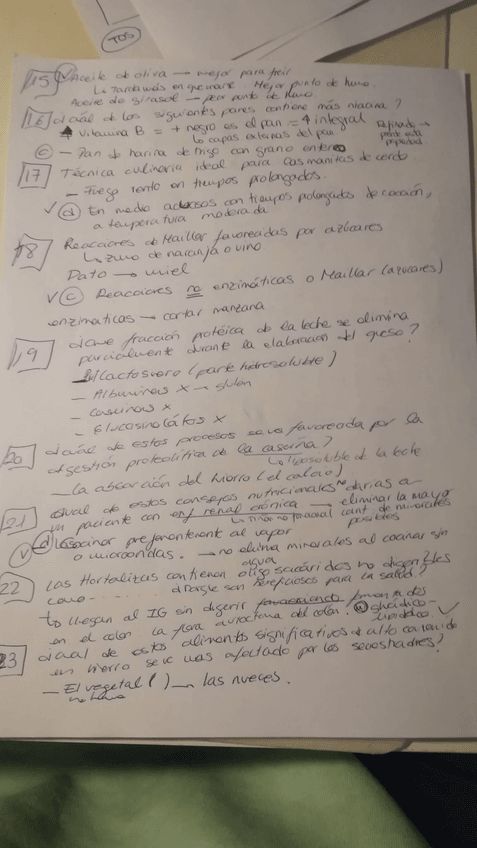 TOS
15 V Aceite de oliva — mejor para freir
↳ Tarda más en quemarse. Mejor punto de humo.
Aceite de girasol — peor punto de humo.
16 ¿Cuál de los siguientes panes contiene más niacina?
Vitamina B = + negro es el pan = integral
↳ capas externas del pan
Refinado →
pierde esta
propiedad
c — Pan de harina de trigo con grano entero
17 Técnica culinaria ideal para las manitas de cerdo
— Fuego lento en tiempos prolongados.
✓ d En medio acuosos con tiempos prolongados de cocción,
a temperatura moderada
18 Reacciones de Maillar favorecidas por azúcares
↳ zumo de naranja o vino
Dato → miel
V c Reacciones no enzimáticas o Maillar (azucares)
enzimaticas — cortar manzana
19 ¿Que fracción protéica de la leche se elimina
parcialmente durante la elaboración del queso?
El lactosuero (parte hidrosoluble)
— Albuminas X →
— Caseinas X
— Glucosinolátos X
20 ¿Cuál de estos procesos se ve favorecida por la
digestión proteolítica de la caseína?
↳ Insoluble de la leche
— La absorción del hierro (el calcio)
21 ¿Cual de estos consejos nutricionales no darias a
un paciente con enf renal crónica — eliminar la mayor
cant de minerales
posibles
V d Cocinar preferentemente al vapor
o microondas. — no elimina minerales al cocinar sin
agua
22 Las Hortalizas contienen oligosacáridos no digeribles
como ...... ¿Porqué son beneficiosos para la salud?
↳ llegan al IG sin digerir
en el colon la flora autoctona del colon. ✓
23 ¿Cual de estos alimentos significativos de alto contenido
en hierro se ve mas afectado por los
— El vegetal ( ) → las nueces.